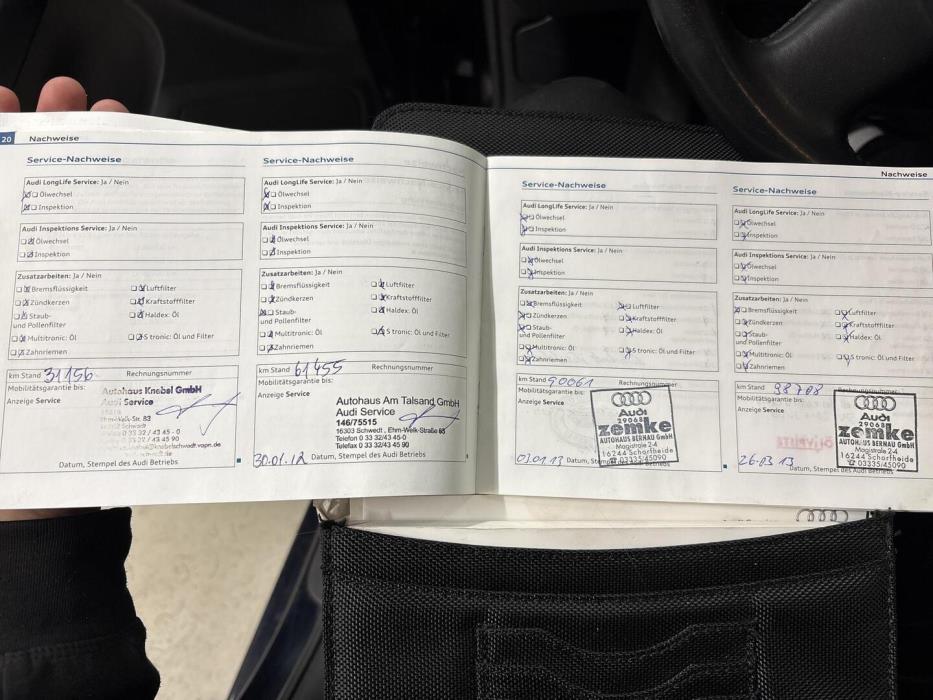 20 Nachweise
Service-Nachweise
Audi LongLife Service: Ja / Nein
Ölwechsel
Inspektion
Audi Inspektions Service: Ja / Nein
Ölwechsel
Inspektion
Zusatzarbeiten: Ja / Nein
Bremsflüssigkeit
Luftfilter
Zündkerzen
Kraftstofffilter
Staub-
und Pollenfilter
Haldex: Öl
Multitronic: Öl
S tronic: Öl und Filter
Zahnriemen
km Stand 31156 Rechnungsnummer
Mobilitätsgarantie bis:
Anzeige Service
Autohaus Knebel GmbH
Audi Service
Ehm-Welk-Str. 83
Schwedt
Datum, Stempel des Audi Betriebs
Service-Nachweise
Audi LongLife Service: Ja / Nein
Ölwechsel
Inspektion
Audi Inspektions Service: Ja / Nein
Ölwechsel
Inspektion
Zusatzarbeiten: Ja / Nein
Bremsflüssigkeit
Luftfilter
Zündkerzen
Kraftstofffilter
Staub-
und Pollenfilter
Haldex: Öl
Multitronic: Öl
S tronic: Öl und Filter
Zahnriemen
km Stand 61455 Rechnungsnummer
Mobilitätsgarantie bis:
Anzeige Service
Autohaus Am Talsand GmbH
Audi Service
146/75515
16303 Schwedt, Ehm-Welk-Straße 83
Telefon 0 33 32/43 45-0
Telefax 0 33 32/43 45 90
30.01.12 Datum, Stempel des Audi Betriebs
Nachweise
Service-Nachweise
Audi LongLife Service: Ja / Nein
Ölwechsel
Inspektion
Audi Inspektions Service: Ja / Nein
Ölwechsel
Inspektion
Zusatzarbeiten: Ja / Nein
Bremsflüssigkeit
Luftfilter
Zündkerzen
Kraftstofffilter
Staub-
und Pollenfilter
Haldex: Öl
Multitronic: Öl
S tronic: Öl und Filter
Zahnriemen
km Stand 90061 Rechnungsnummer
Mobilitätsgarantie bis:
Anzeige Service
Audi
29068
zemke
AUTOHAUS BERNAU GmbH
Magistrale 2-4
16244 Schorfheide
☎ 03335/45090
03.01.13 Datum, Stempel des Audi Betriebs
Service-Nachweise
Audi LongLife Service: Ja / Nein
Ölwechsel
Inspektion
Audi Inspektions Service: Ja / Nein
Ölwechsel
Inspektion
Zusatzarbeiten: Ja / Nein
Bremsflüssigkeit
Luftfilter
Zündkerzen
Kraftstofffilter
Staub-
und Pollenfilter
Haldex: Öl
Multitronic: Öl
S tronic: Öl und Filter
Zahnriemen
km Stand 98708 Rechnungsnummer
Mobilitätsgarantie bis:
Anzeige Service
Audi
29068
zemke
AUTOHAUS BERNAU GmbH
Magistrale 2-4
16244 Schorfheide
☎ 03335/45090
26.03.13 Datum, Stempel des Audi Betriebs